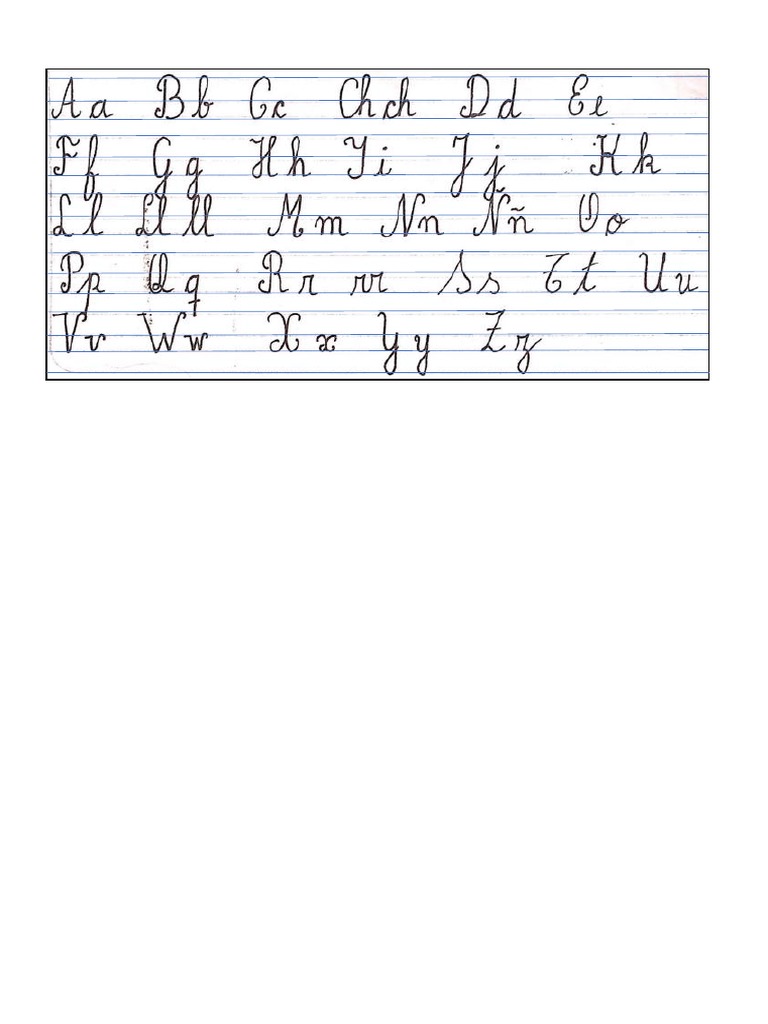 A a B b C c Ch ch D d E e
F f G g H h I i J j K k
L l Ll ll M m N n Ñ ñ O o
P p Q q R r rr S s T t U u
V v W w X x Y y Z z